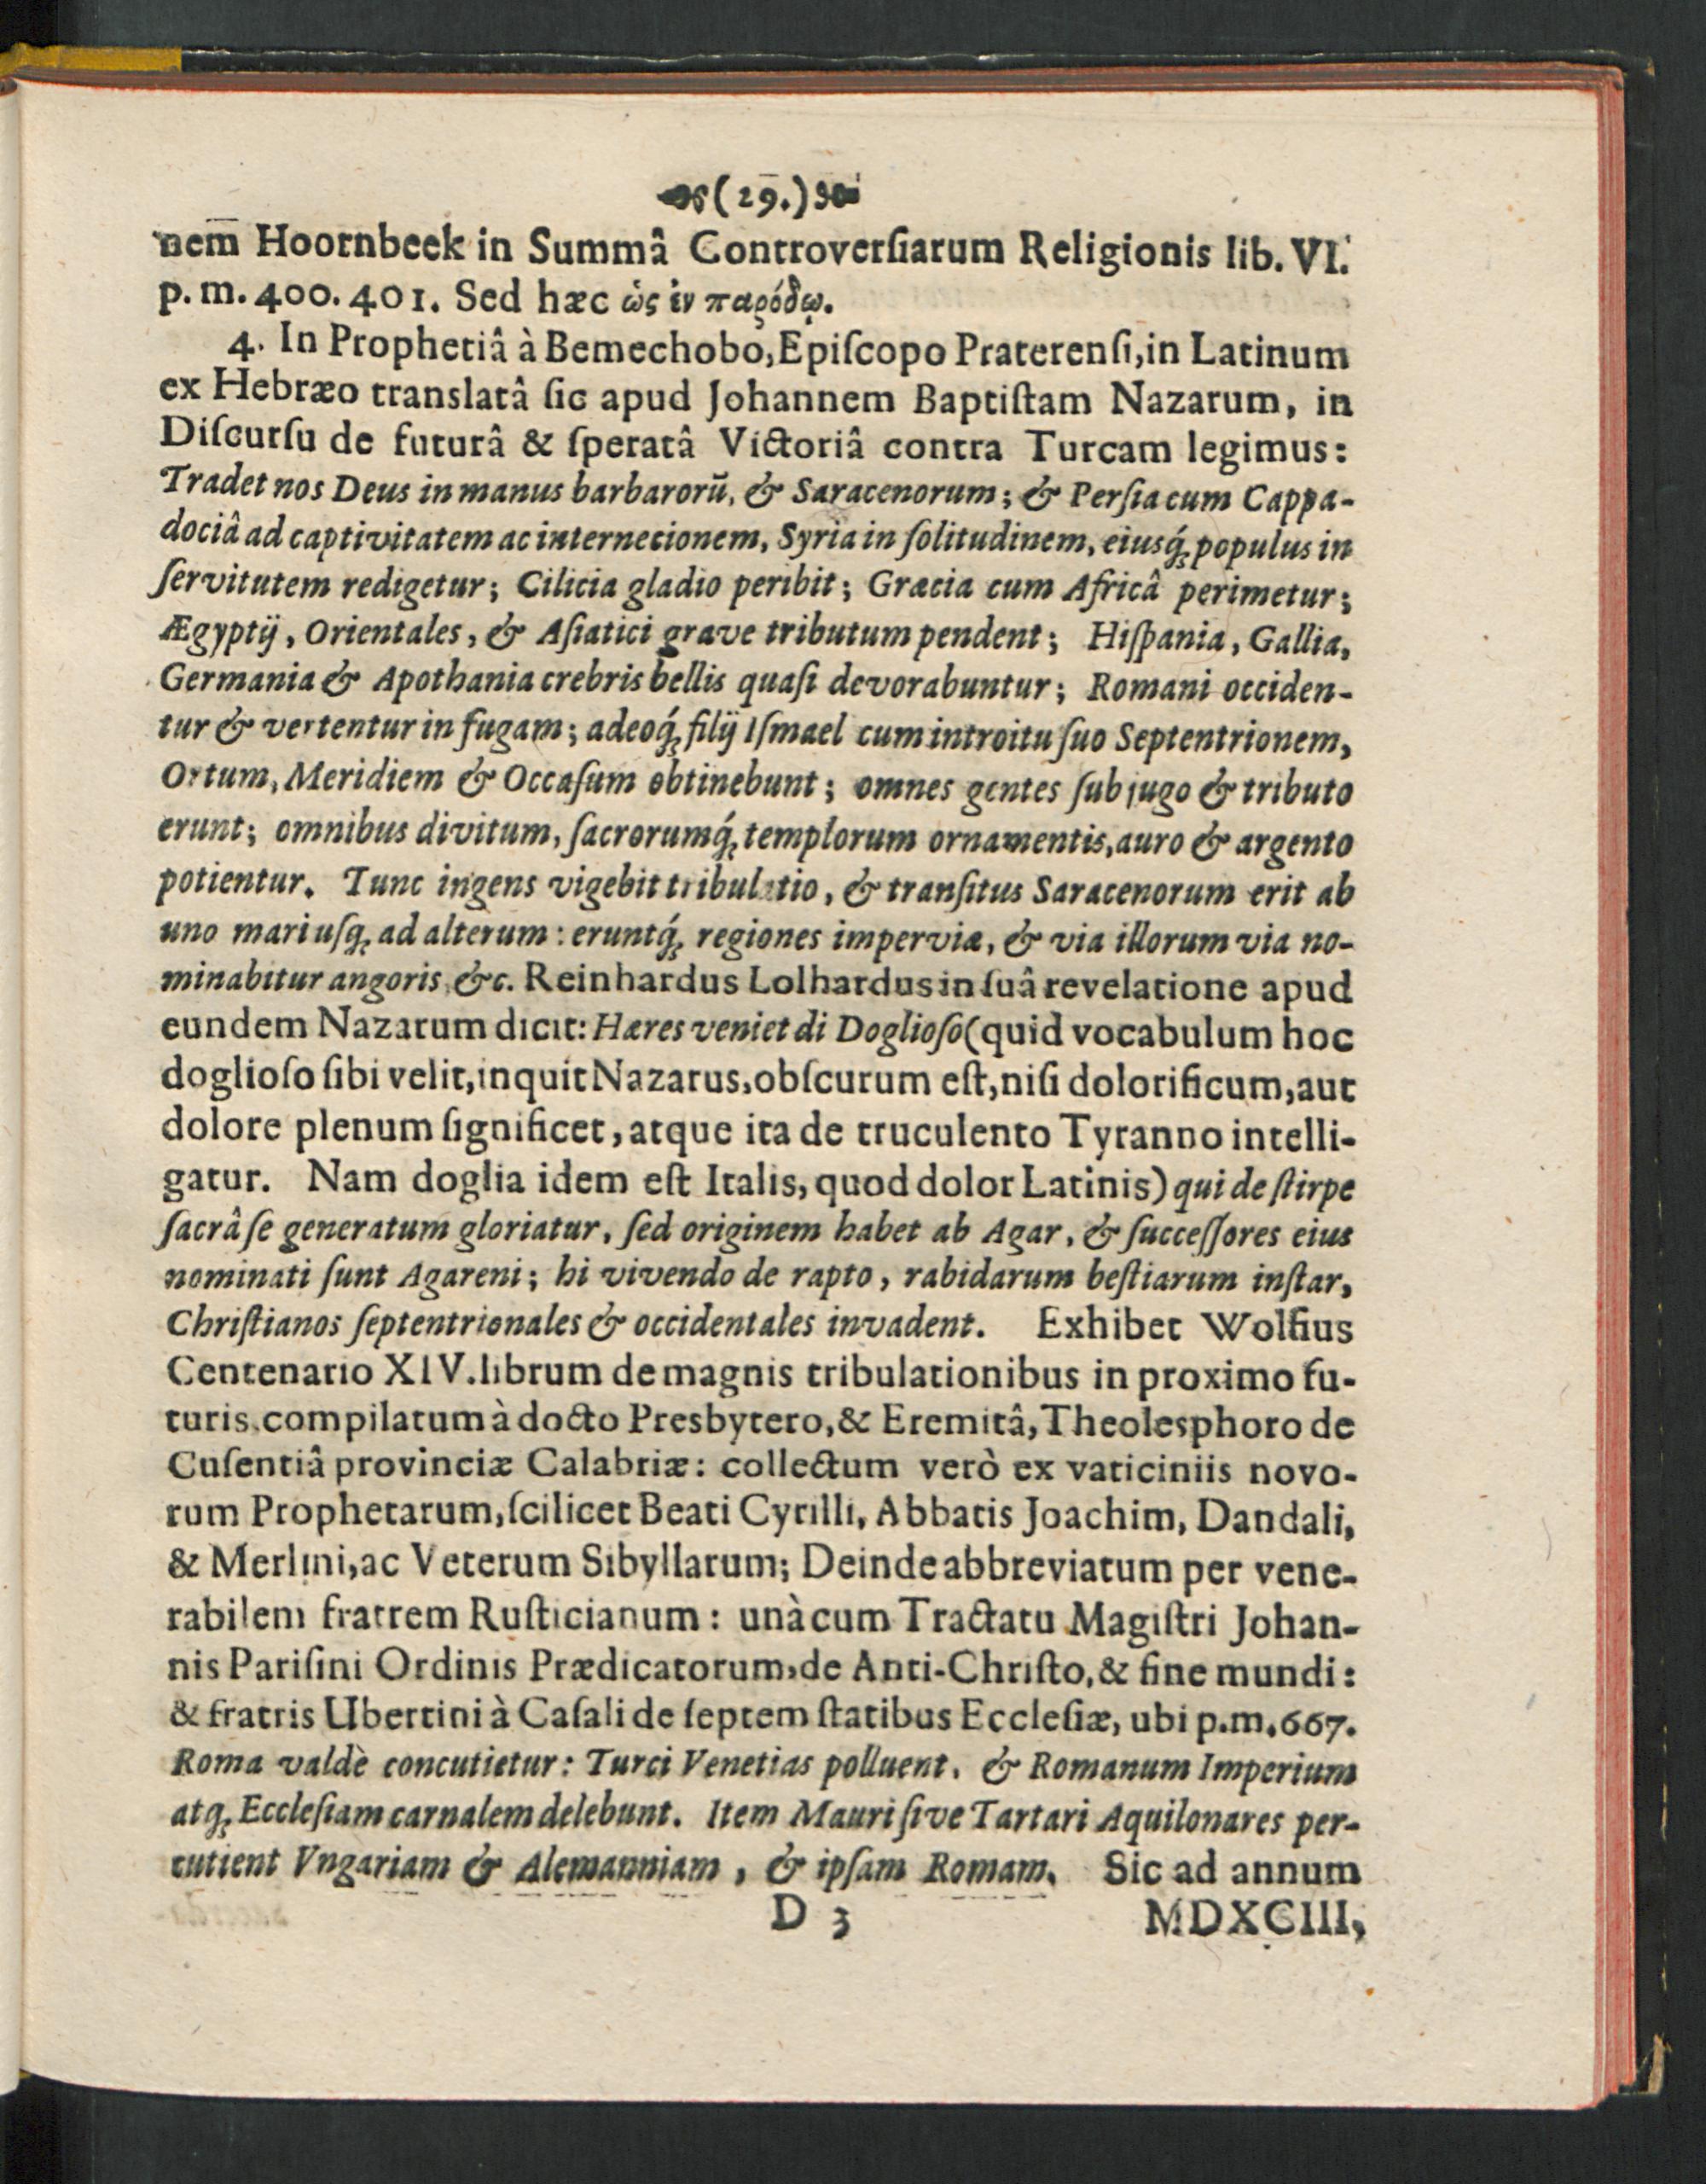 (29.)
nem̅ Hoornbeek in Summâ Controverſiarum Religionis lib. VI.
p. m. 400. 401. Sed hæc ὡς ἐν παρόδῳ.
4. In Prophetiâ à Bemechobo, Epiſcopo Praterenſi, in Latinum
ex Hebræo translatâ ſic apud Johannem Baptiſtam Nazarum, in
Diſcurſu de futurâ & ſperatâ Victoriâ contra Turcam legimus:
Tradet nos Deus in manus barbarorū, & Saracenorum; & Perſia cum Cappa-
dociâ ad captivitatem ac internecionem, Syria in ſolitudinem, eiusq́; populus in
ſervitutem redigetur; Cilicia gladio peribit; Græcia cum Africâ perimetur;
Ægyptij, Orientales, & Aſiatici grave tributum pendent; Hiſpania, Gallia,
Germania & Apothania crebris bellis quaſi devorabuntur; Romani occiden-
tur & vertentur in fugam; adeoq́; filij Iſmael cum introitu ſuo Septentrionem,
Ortum, Meridiem & Occaſum obtinebunt; omnes gentes ſub jugo & tributo
erunt; omnibus divitum, ſacrorumq́; templorum ornamentis, auro & argento
potientur. Tunc ingens vigebit tribulatio, & tranſitus Saracenorum erit ab
uno mari uſq; ad alterum: eruntq́; regiones imperviæ, & via illorum via no-
minabitur angoris, &c. Reinhardus Lolhardus in ſuâ revelatione apud
eundem Nazarum dicit: Hæres veniet di Doglioſo (quid vocabulum hoc
doglioſo ſibi velit, inquit Nazarus, obſcurum eſt, niſi dolorificum, aut
dolore plenum ſignificet, atque ita de truculento Tyranno intelli-
gatur. Nam doglia idem eſt Italis, quod dolor Latinis) qui de ſtirpe
ſacrâ ſe generatum gloriatur, ſed originem habet ab Agar, & ſucceſſores eius
nominati ſunt Agareni; hi vivendo de rapto, rabidarum beſtiarum inſtar,
Chriſtianos ſeptentrionales & occidentales invadent. Exhibet Wolfius
Centenario XIV. librum de magnis tribulationibus in proximo fu-
turis, compilatum à docto Presbytero, & Eremitâ, Theolesphoro de
Cuſentiâ provinciæ Calabriæ: collectum verò ex vaticiniis novo-
rum Prophetarum, ſcilicet Beati Cyrilli, Abbatis Joachim, Dandali,
& Merlini, ac Veterum Sibyllarum; Deinde abbreviatum per vene-
rabilem fratrem Ruſticianum: unà cum Tractatu Magiſtri Johan-
nis Pariſini Ordinis Prædicatorum, de Anti-Chriſto, & fine mundi:
& fratris Ubertini à Caſali de ſeptem ſtatibus Eccleſiæ, ubi p. m. 667.
Roma valdè concutietur: Turci Venetias polluent, & Romanum Imperium
atq; Eccleſiam carnalem delebunt. Item Mauri ſive Tartari Aquilonares per-
cutient Vngariam & Alemanniam, & ipſam Romam. Sic ad annum
D 3 MDXCIII,